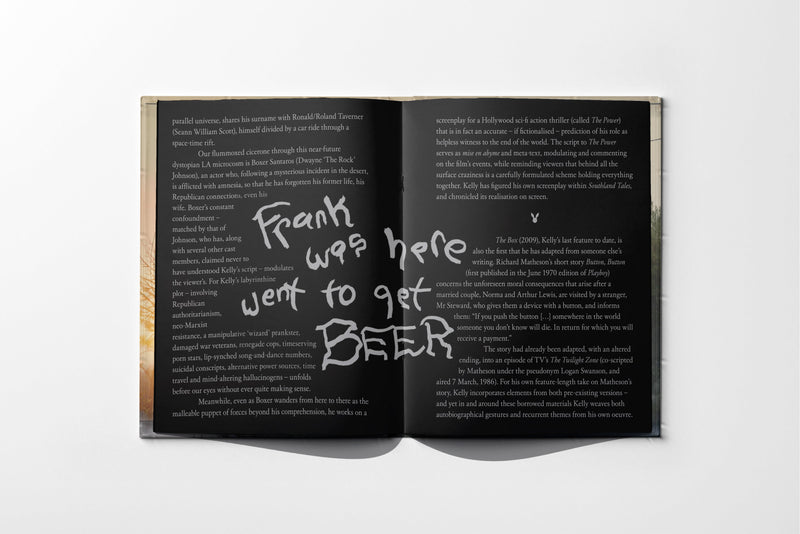 parallel universe, shares his surname with Ronald/Roland Taverner
(Seann William Scott), himself divided by a car ride through a
space-time rift.
Our flummoxed cicerone through this near-future
dystopian LA microcosm is Boxer Santaros (Dwayne 'The Rock'
Johnson), an actor who, following a mysterious incident in the desert,
is afflicted with amnesia, so that he has forgotten his former life, his
Republican connections, even his
wife. Boxer's constant
confoundment –
matched by that of
Johnson, who has, along
with several other cast
members, claimed never to
have understood Kelly's script – modulates
the viewer's. For Kelly's labyrinthine
plot – involving
Republican
authoritarianism,
neo-Marxist
resistance, a manipulative 'wizard' prankster,
damaged war veterans, renegade cops, timeserving
porn stars, lip-synched song-and-dance numbers,
suicidal conscripts, alternative power sources, time
travel and mind-altering hallucinogens – unfolds
before our eyes without ever quite making sense.
Meanwhile, even as Boxer wanders from here to there as the
malleable puppet of forces beyond his comprehension, he works on a
Frank
was here
went to get
BEER
screenplay for a Hollywood sci-fi action thriller (called The Power)
that is in fact an accurate – if fictionalised – prediction of his role as
helpless witness to the end of the world. The script to The Power
serves as mise en abyme and meta-text, modulating and commenting
on the film's events, while reminding viewers that behind all the
surface craziness is a carefully formulated scheme holding everything
together. Kelly has figured his own screenplay within Southland Tales,
and chronicled its realisation on screen.
The Box (2009), Kelly's last feature to date, is
also the first that he has adapted from someone else's
writing. Richard Matheson's short story Button, Button
(first published in the June 1970 edition of Playboy)
concerns the unforeseen moral consequences that arise after a
married couple, Norma and Arthur Lewis, are visited by a stranger,
Mr Steward, who gives them a device with a button, and informs
them: "If you push the button [...] somewhere in the world
someone you don't know will die. In return for which you will
receive a payment."
The story had already been adapted, with an altered
ending, into an episode of TV's The Twilight Zone (co-scripted
by Matheson under the pseudonym Logan Swanson, and
aired 7 March, 1986). For his own feature-length take on Matheson's
story, Kelly incorporates elements from both pre-existing versions –
and yet in and around these borrowed materials Kelly weaves both
autobiographical gestures and recurrent themes from his own oeuvre.